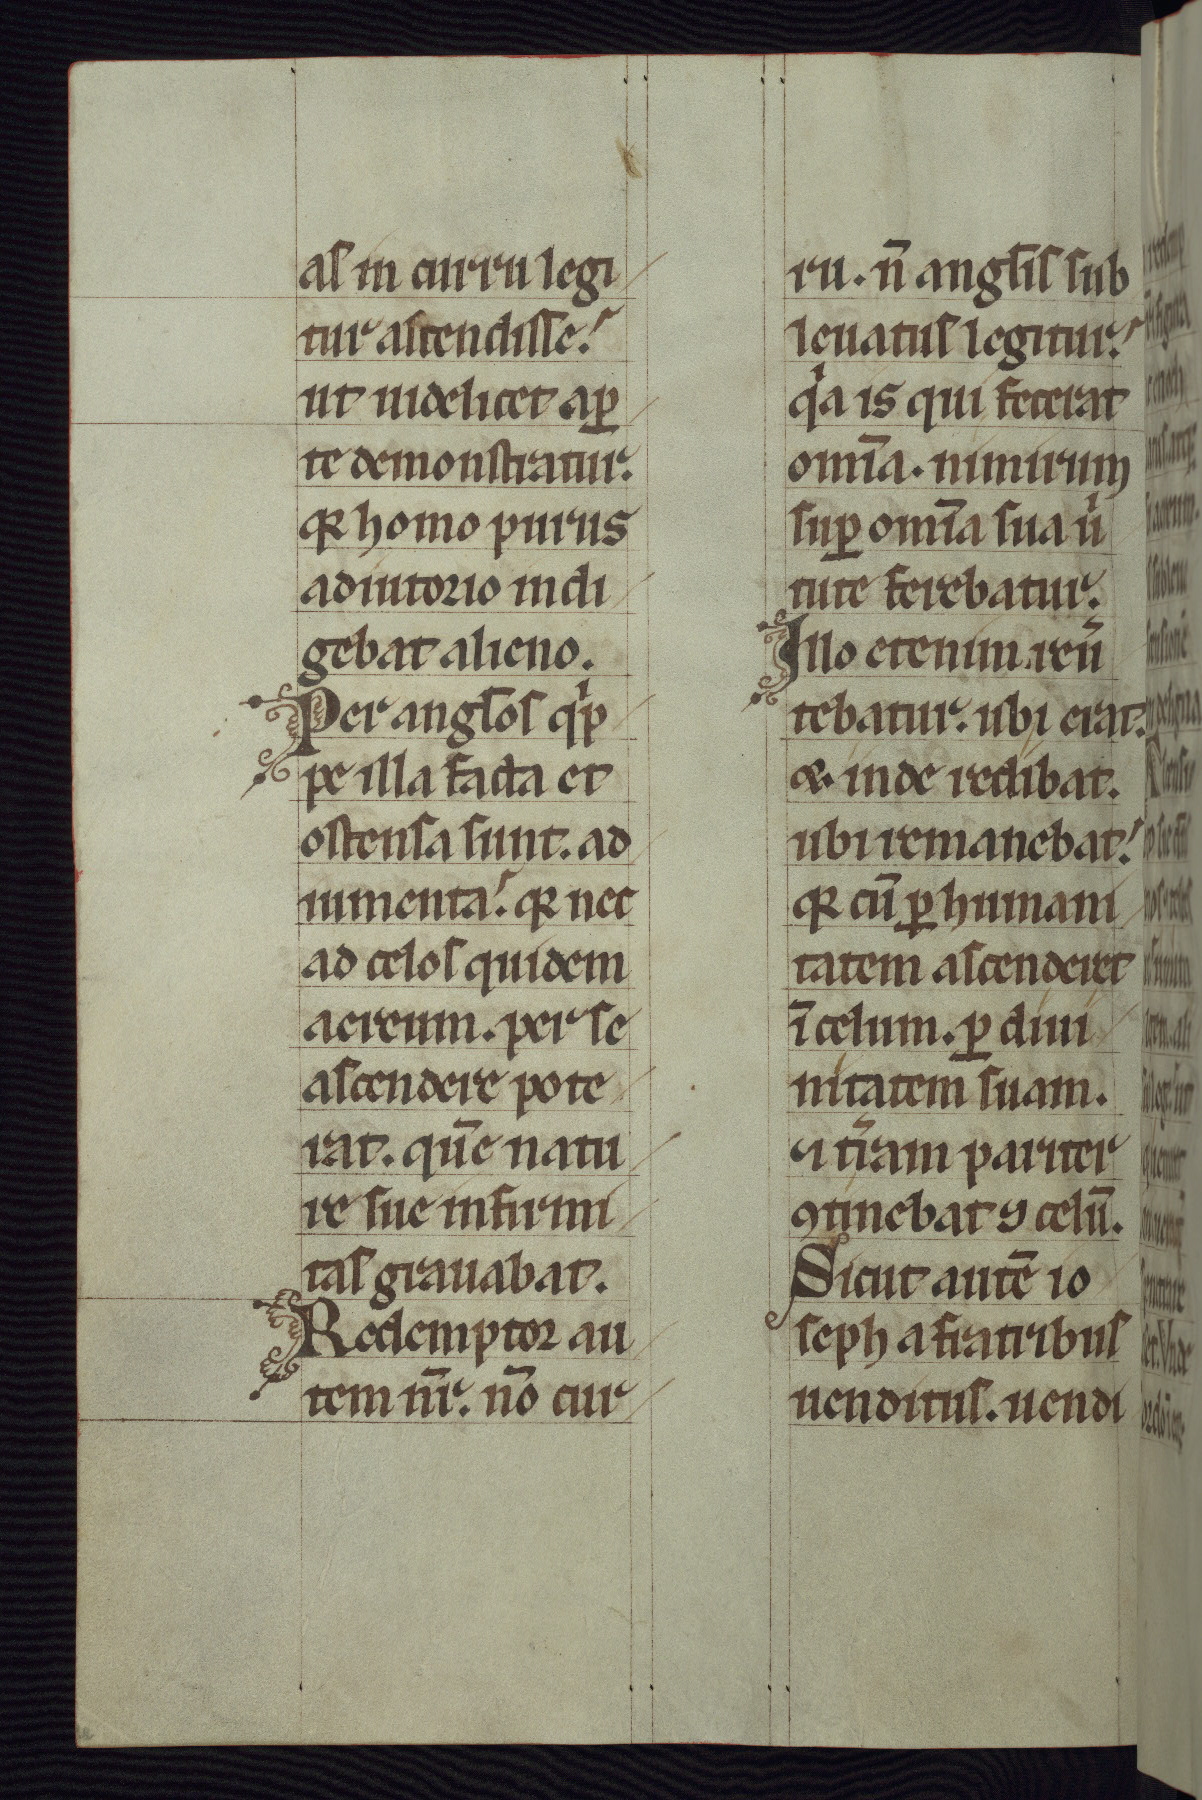 as in curru legi
tur ascendisse.
ut uidelicet ap̲
te demonstratur.
qꝛ homo purus
adiutorio indi
gebat alieno.
Per angl̅os qͥp
pe illa facta et
ostensa sunt. ad
iumenta. qꝛ nec
ad celos quidem
aereum. per se
ascendere pote
rat. que̅ natu
re sue infirmi
tas grauabat.
Redemptor au
tem nr̅. no̅ cur
ru. n̅ angl̅is sub
leuatus legitur.
qͥa is qui fecerat
om̅ia. nimirum
suꝑ om̅ia sua uͥ
tute ferebatur.
Illo etenim reu̅
tebatur. ubi erat.
&. inde redibat.
ubi remanebat.
qꝛ cu̅ ꝑ humani
tatem ascenderet
i̅ celum. ꝑ diui
nitatem suam.
⁊ t̅ram pariter
ꝯtinebat ⁊ celu̅.
Sicut aute̅ io
seph a fratribus
uenditus. uendi